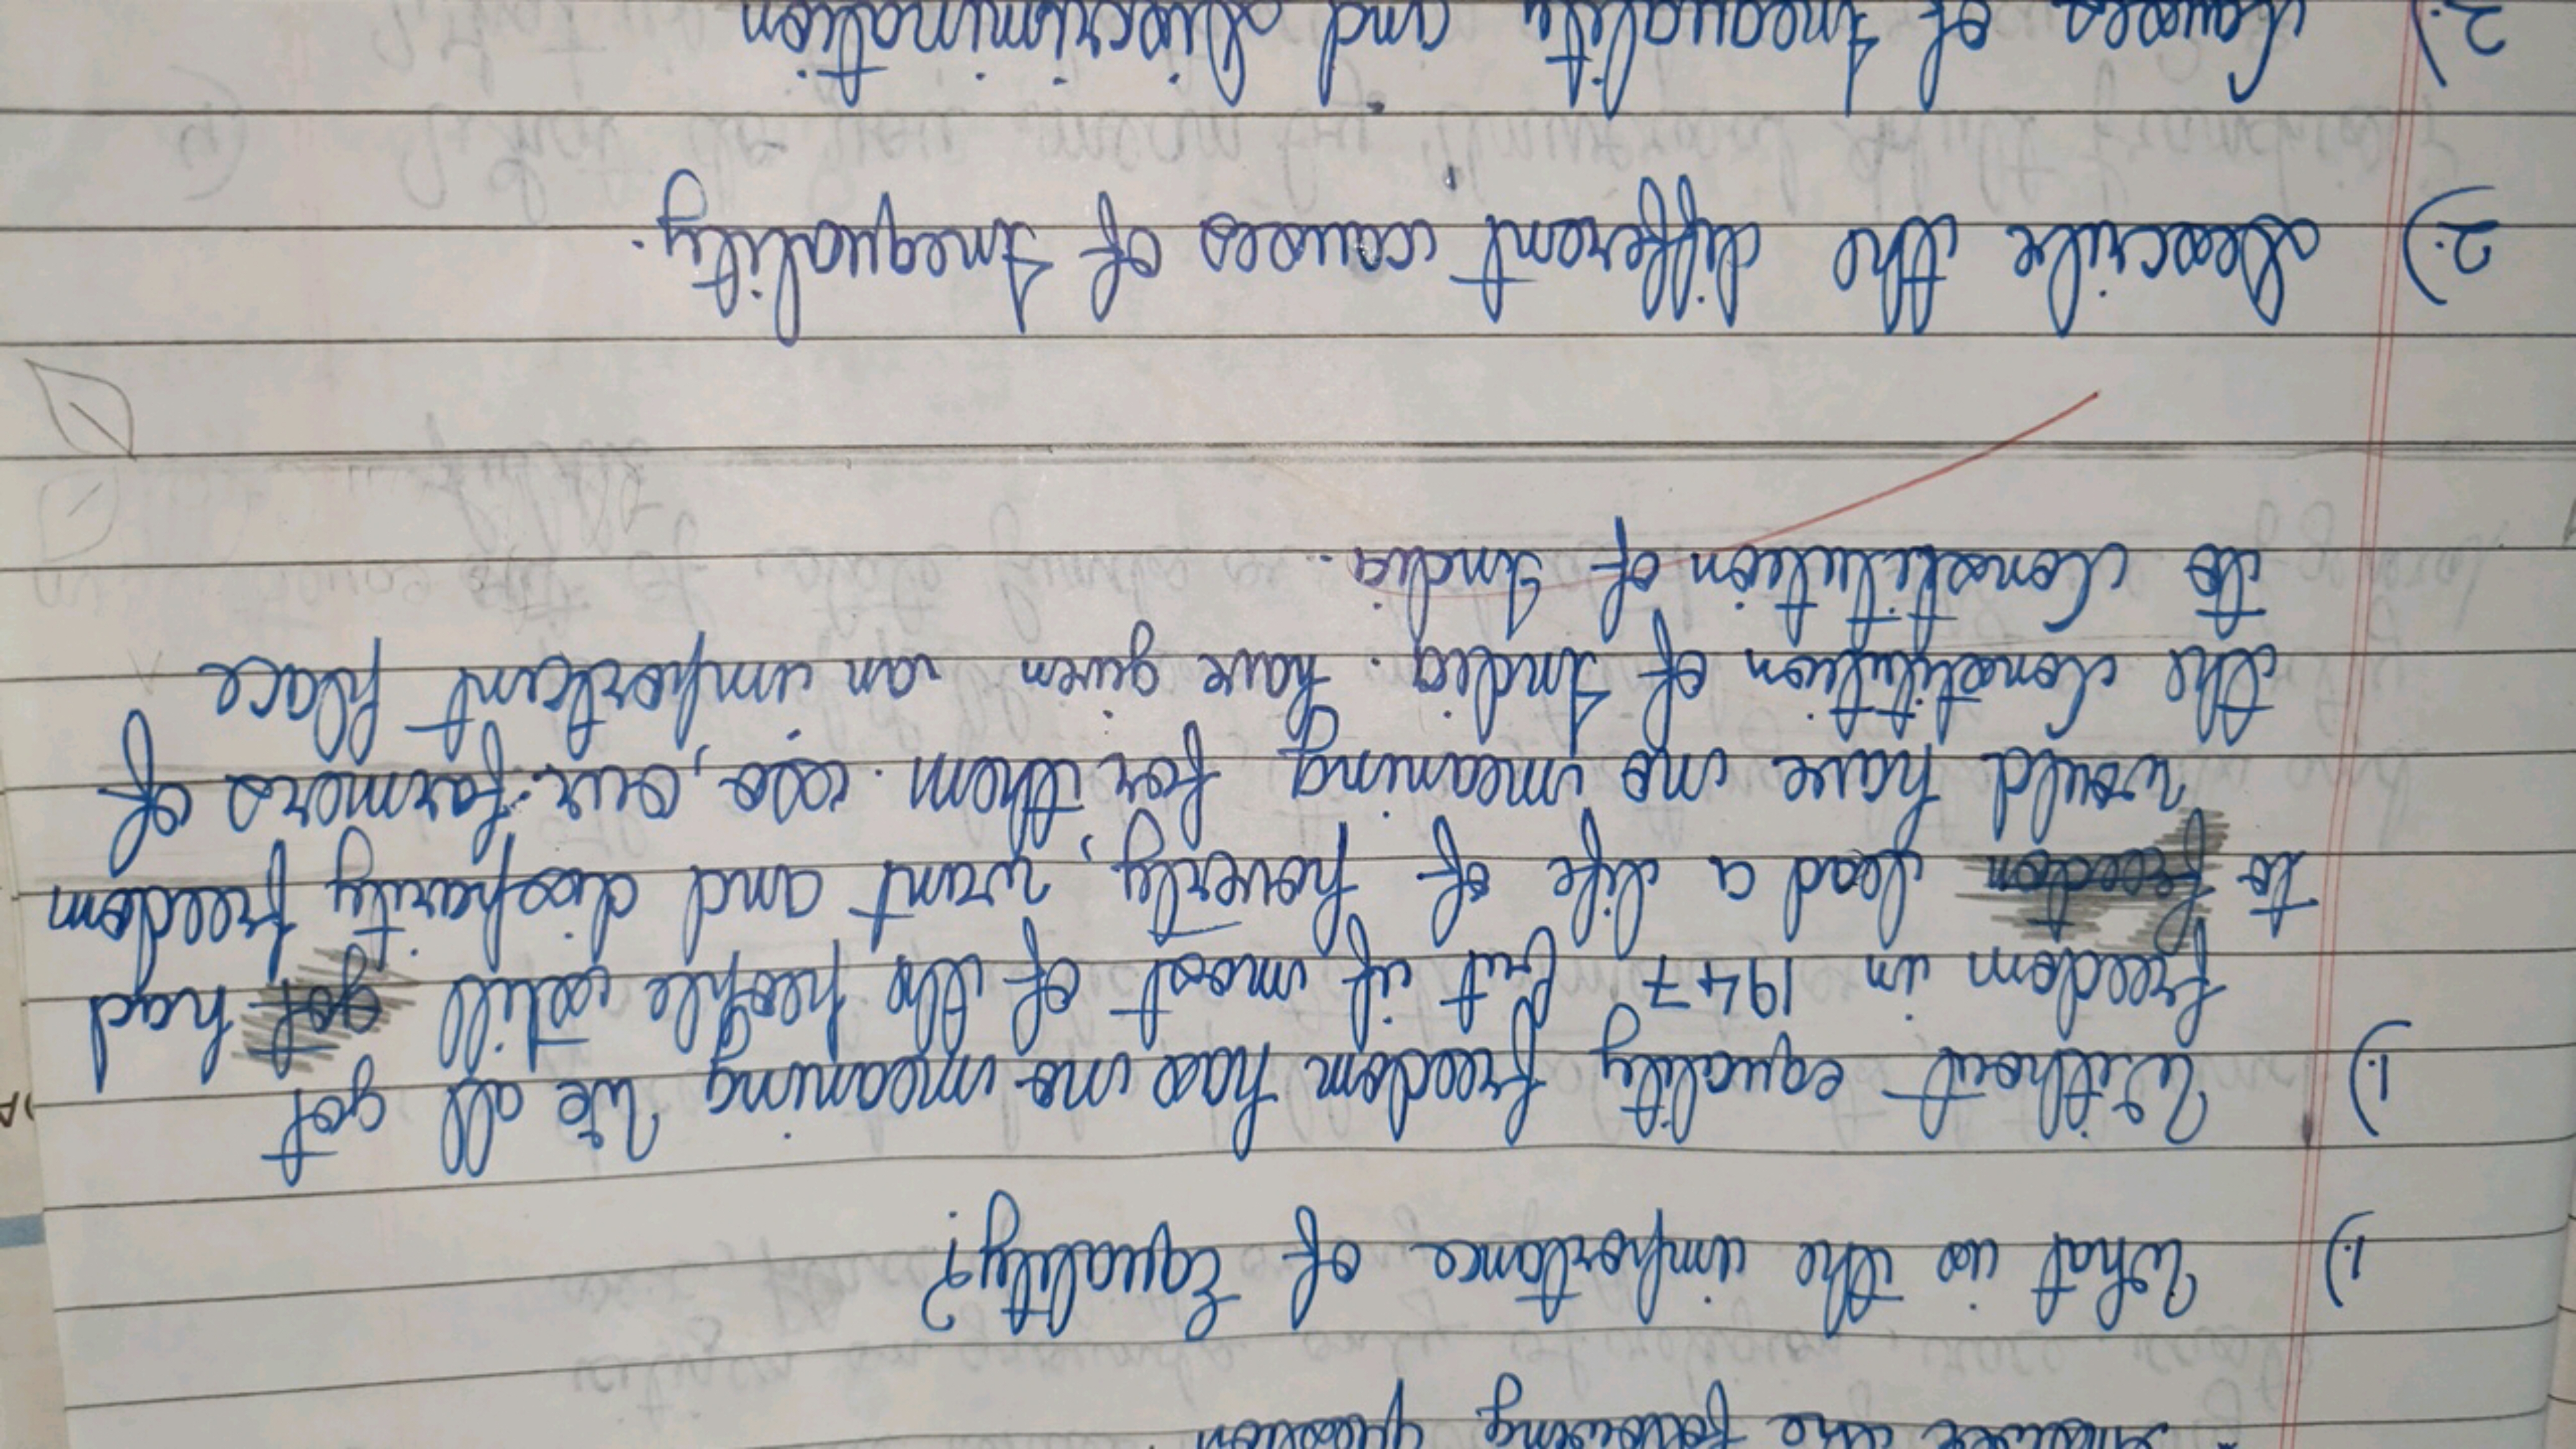 Answer the following question
1.) What is the importance of Equality?
1.) Without equality freedom has no meaning We all got
freedom in 1947, but if most of the people still got had
to freedom lead a life of poverty, want and disparity freedom
would have no meaning for them. so, our farmers of
the Constitution of India. have given an important place
to Constitution of India.
2.) Describe the different causes of Inequality.
2.) Causes of Inequality and discrimination